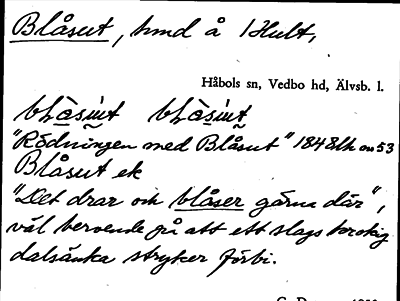 Blåsut, sund å 1 Hult,
Håbols sn, Vedbo hd, Älvsb. l.
blåsut blåsut
"Rödningen med Blåsut" 1848 lh om 53
Blåsut ek
"Det drar och blåser gärna där",
väl beroende på att ett slags krokig
dalsänka stryker förbi.